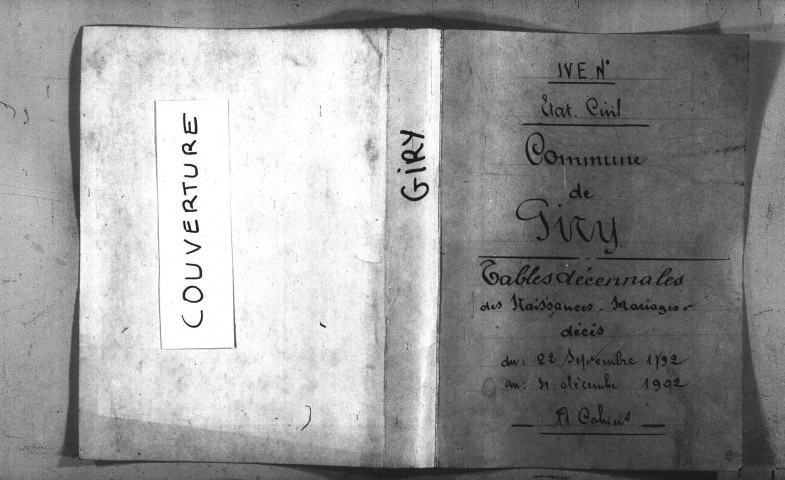 COUVERTURE
GIRY
IVE N°
Etat. Civil
Commune
de
Giry
Tables décennales
des Naissances. Mariages.
décés
du: 22 Septembre 1792
au: 31 décembre 1902
Cahiers